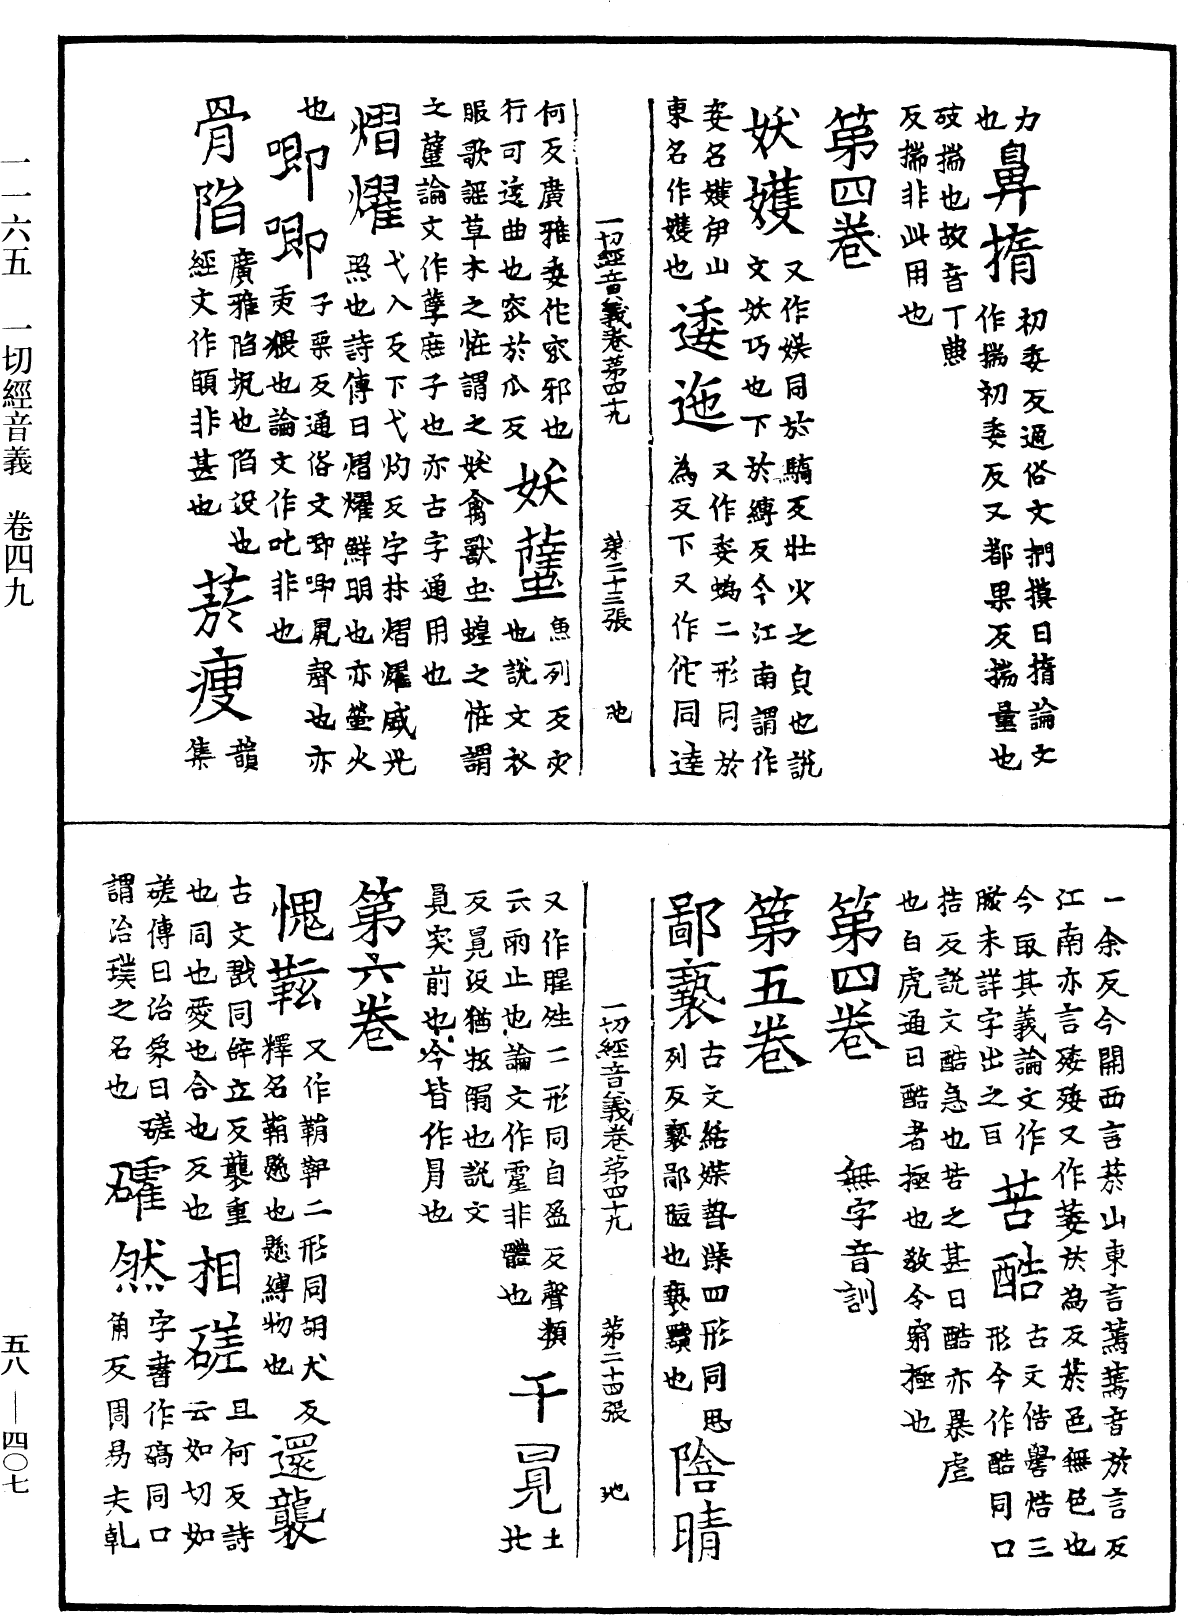 一一六五　一切經音義　卷四九
力
也鼻揣初委反通俗文捫摸曰揣論文
作揣初委反又都果反揣量也
敁揣也故音丁兼
反揣非此用也
第四卷
妖嬳又作媄同於驕反壯火之皃也說
文妖巧也下於縛反今江南謂作
妄名嬳伊山
東名作嬳也逶迤又作委蜲二形同於
為反下又作佗同達
一切經音義卷第四十九　第二十三張　池
何反廣雅委佗窊邪也
行可逶曲也窊於瓜反妖蠥魚列反灾
也說文衣
服歌謡草木之怪謂之妖禽獸虫蝗之怪謂
之蠥論文作孽庶子也亦古字通用也
熠燿弋入反下弋灼反字林熠燿盛光
照也詩傳曰熠燿鮮明也亦螢火
也唧唧子栗反通俗文唧唧鼠聲也亦
衆猥也論文作叱非也
骨陷廣雅陷坑也陷没也
經文作䪞非甚也菸瘦韻
集
一余反今關西言菸山東言蔫蔫音於言反
江南亦言殗殗又作萎於為反菸邑無色也
今取其義論文作
䏶未詳字出之百苦酷古文俈嚳焅三
形今作酷同口
捁反說文酷急也苦之甚曰酷亦暴虐
也白虎通曰酷者極也教令窮極也
第四卷　無字音訓
第五卷
鄙褻古文結媟暬䙝四形同思
列反褻鄙陋也褻黷也陰晴
一切經音義卷第四十九　第二十四張　池
又作腥夝二形同自盈反聲類
云雨止也論文作霔非體也干冒土
北
反冒没猶抵觸也說文
冒突前也今皆作冐也
第六卷
愧鞃又作鞘䩙二形同胡犬反
釋名鞘懸也懸縛物也還襲
古文戩同辝立反襲重
也同也愛也合也反也相磋且何反詩
云如切如
磋傳曰治象曰磋
謂治璞之名也確然字書作碻同口
角反周易夫乹
五八—四〇七